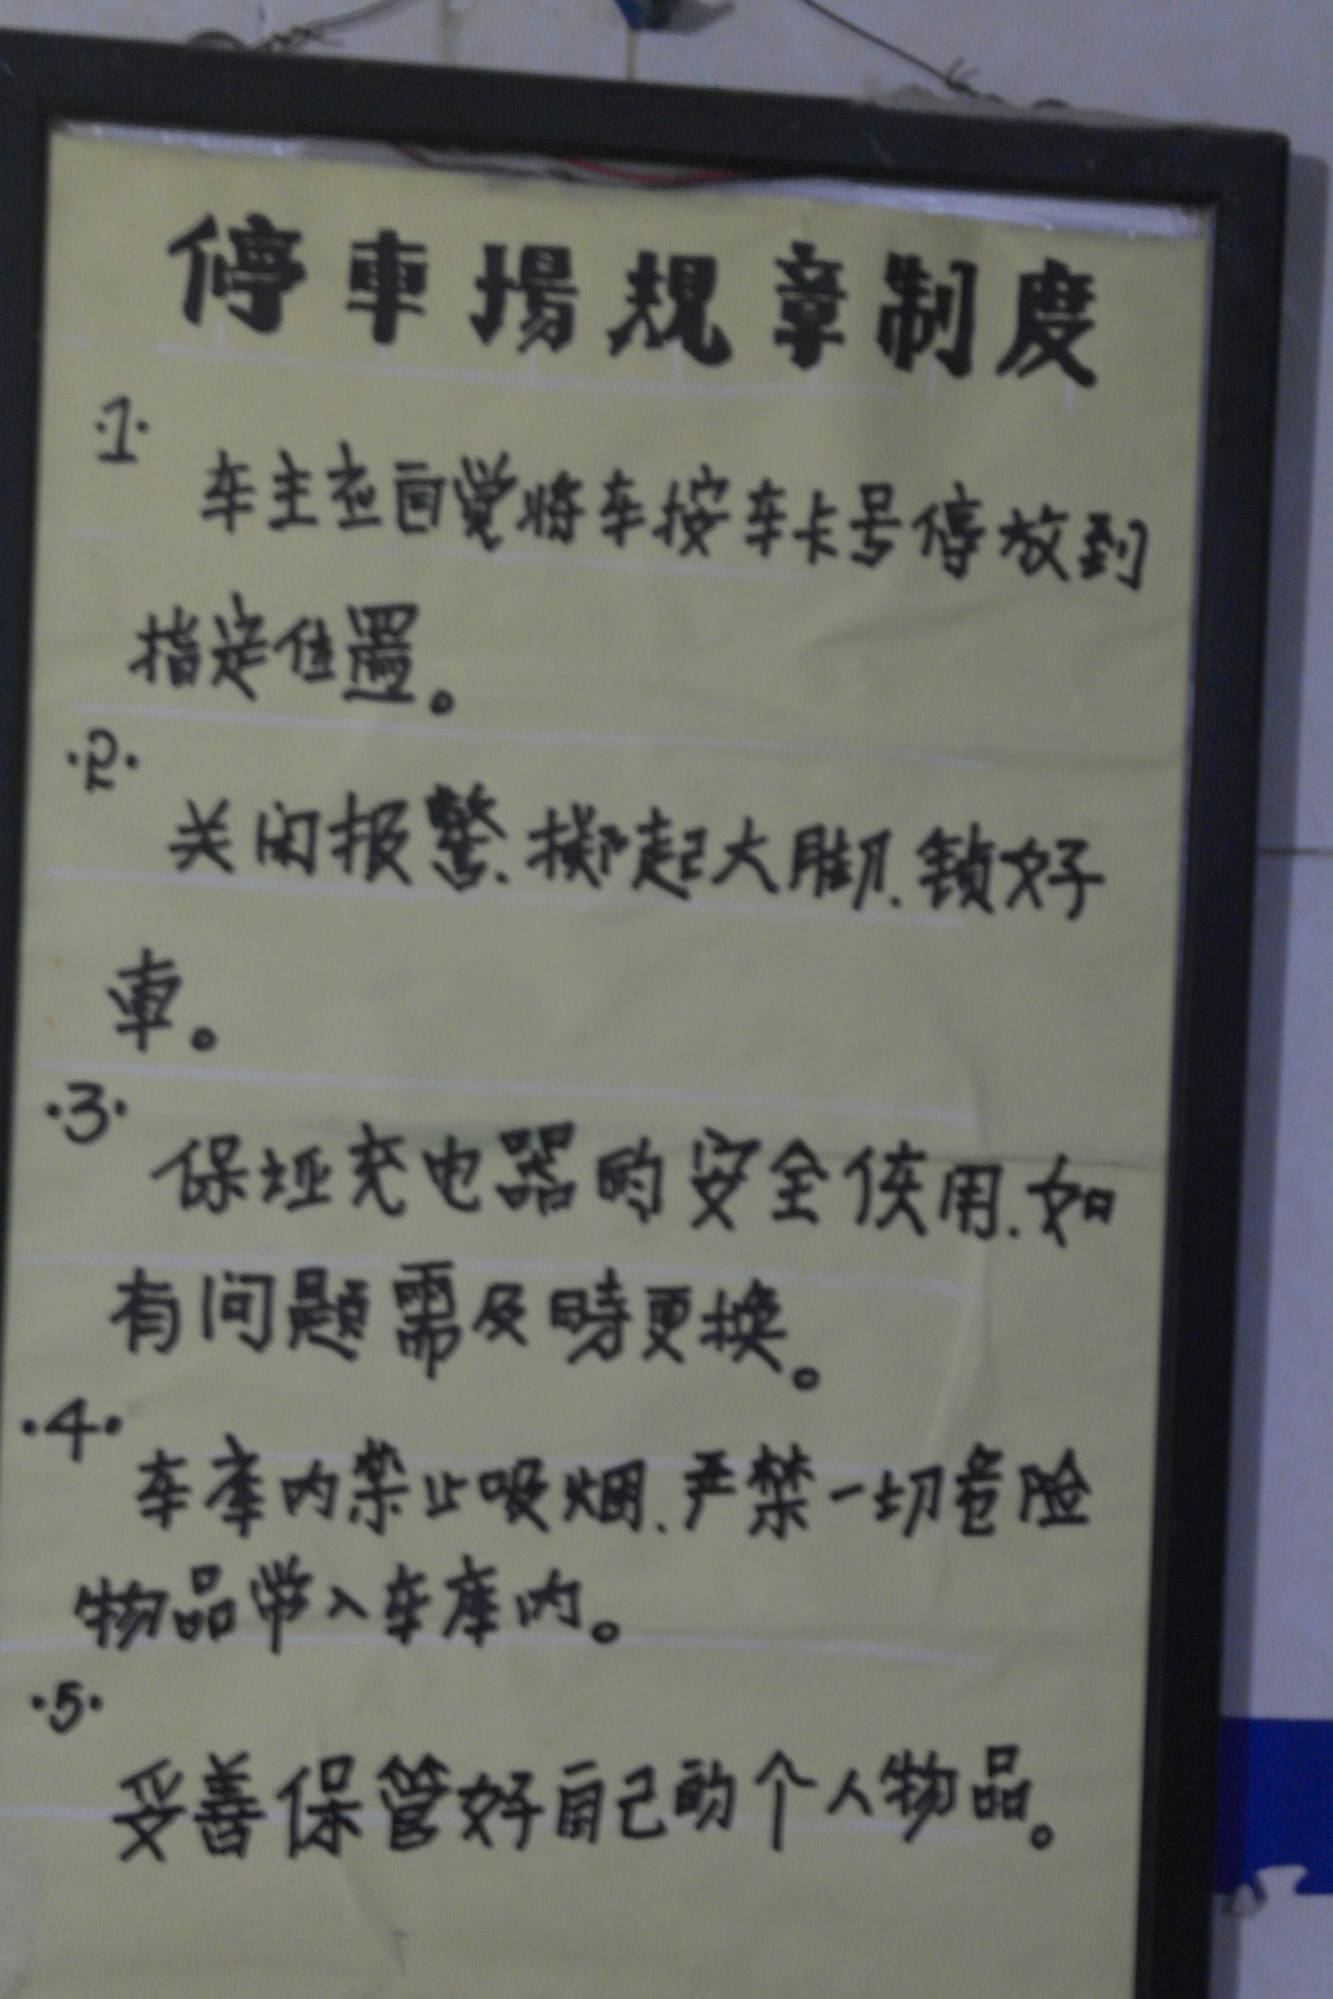 停車場規章制度
.1.
车主应自觉将车按车卡号停放到
指定位置。
.2.
关闭报警.掷起大脚.锁好
車。
.3.
保证充电器的安全使用.如
有问题需及時更换。
.4.
车库内禁止吸烟.严禁一切危险
物品带入车库内。
.5.
妥善保管好自己的个人物品。